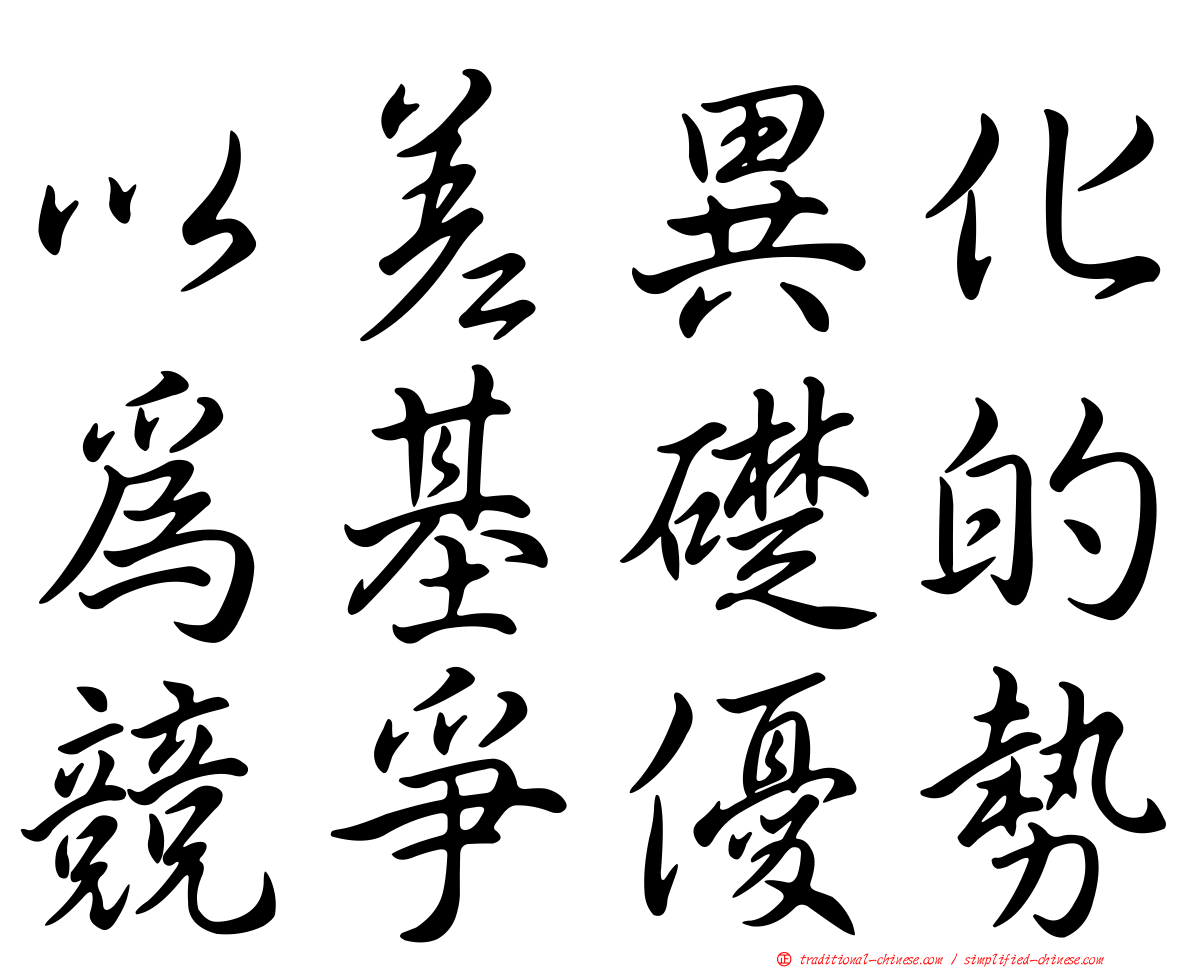 以差異化
爲基礎的
競爭優勢
㊣ traditional-chinese.com / simplified-chinese.com